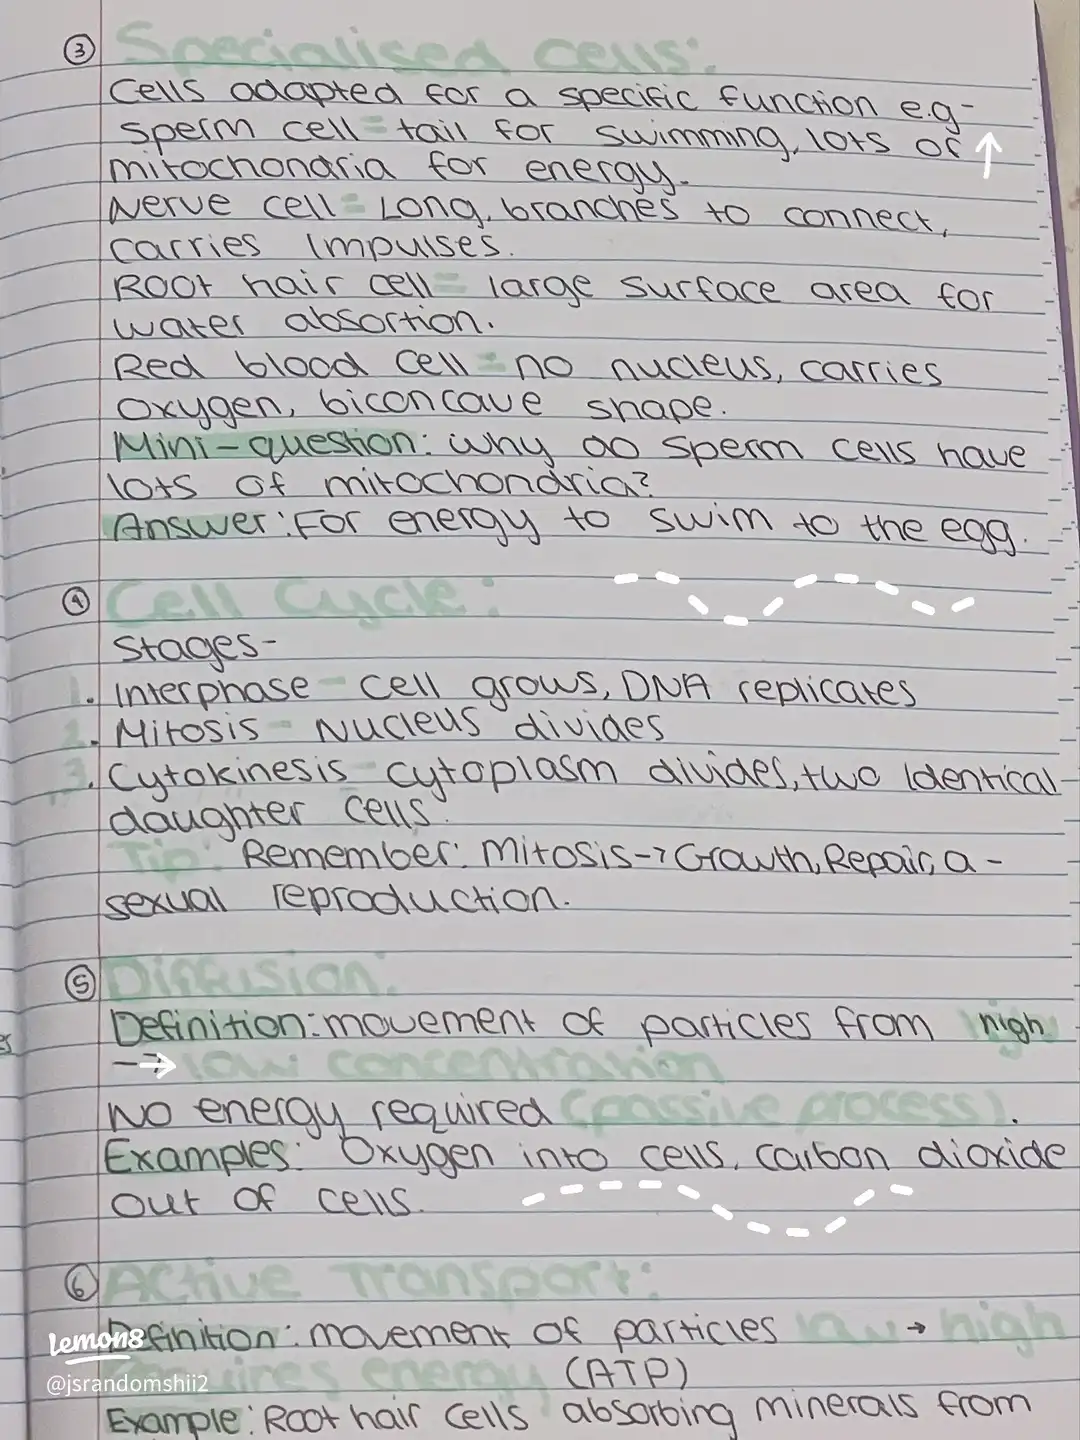 ③ Specialised Cells:
Cells adapted for a specific function e.g-
sperm cell = tail for swimming, lots of
mitochondria for energy.
Nerve cell = Long, branches to connect,
carries impulses.
Root hair cell = large surface area for
water absortion.
Red blood cell = no nucleus, carries
oxygen, biconcave shape.
Mini-question: why do sperm cells have
lots of mitochondria?
Answer: For energy to swim to the egg.
④ Cell Cycle:
Stages-
1. Interphase - cell grows, DNA replicates
2. Mitosis - Nucleus divides
3. Cytokinesis - cytoplasm divides, two identical
daughter cells.
Tip: Remember: Mitosis → Growth, Repair, a-
sexual reproduction.
⑤ Diffusion:
Definition: movement of particles from high
→ low concentration
No energy required (passive process).
Examples: Oxygen into cells, carbon dioxide
out of cells.
⑥ Active Transport:
Definition: movement of particles low → high
energy (ATP)
Example: Root hair cells absorbing minerals from
Lemon8
@jsrandomshii2